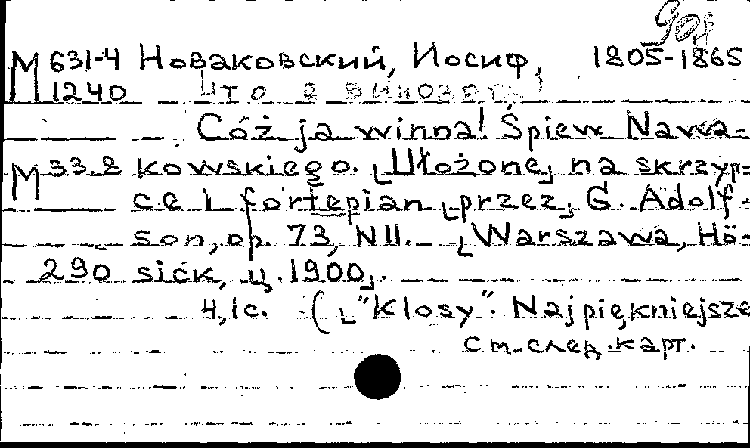 доп
М 631-4 Новаковский, Иосиф, 1805-1865
1240 Что я виновата!
Cóż ja winna! Śpiew Nawa-
М 33.8 kowskiego. [Ułożone] na skrzyp=
ce i fortepian [przez] G. Adolf-
son, op. 73, N11. [Warszawa, Hö-
290 sick, ц. 1900].
4,1c. (["Klosy". Najpiękniejsze
См. след. карт.